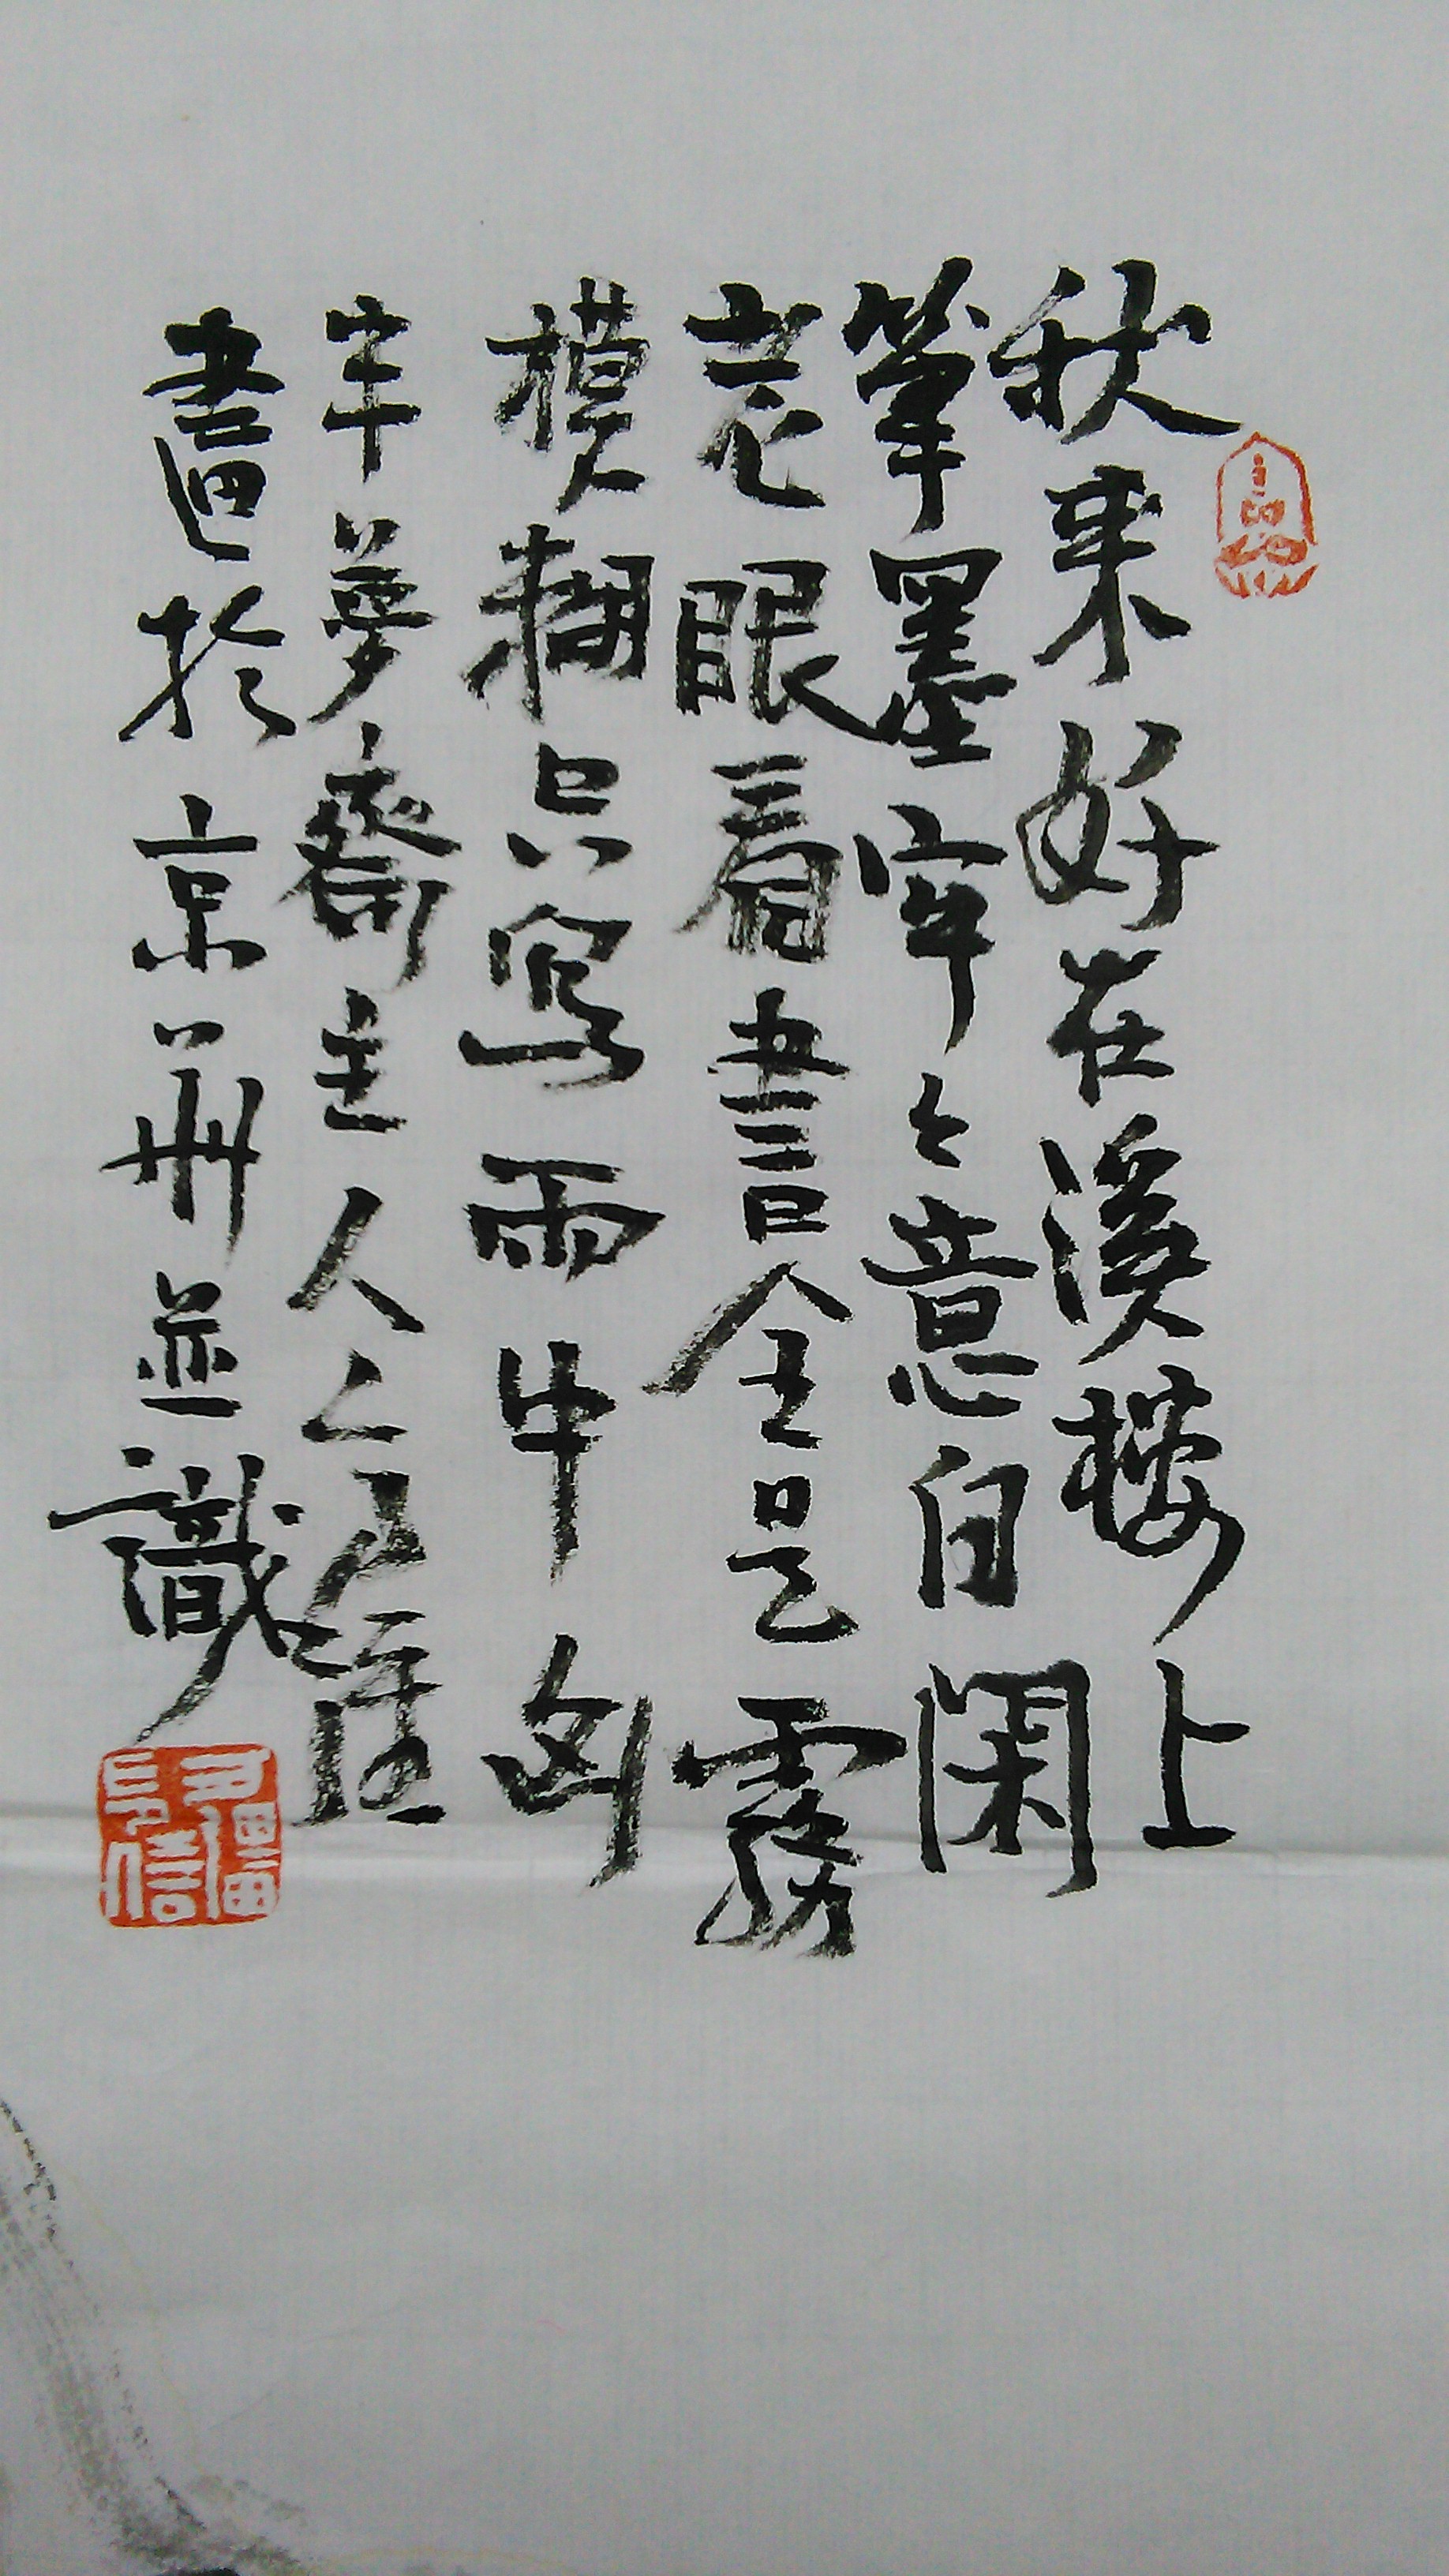 秋来好在溪樓上
筆墨牢々意自閑
老眼看書全是霧
模糊只寫雨中山
夢齋主人
畫於京華並識